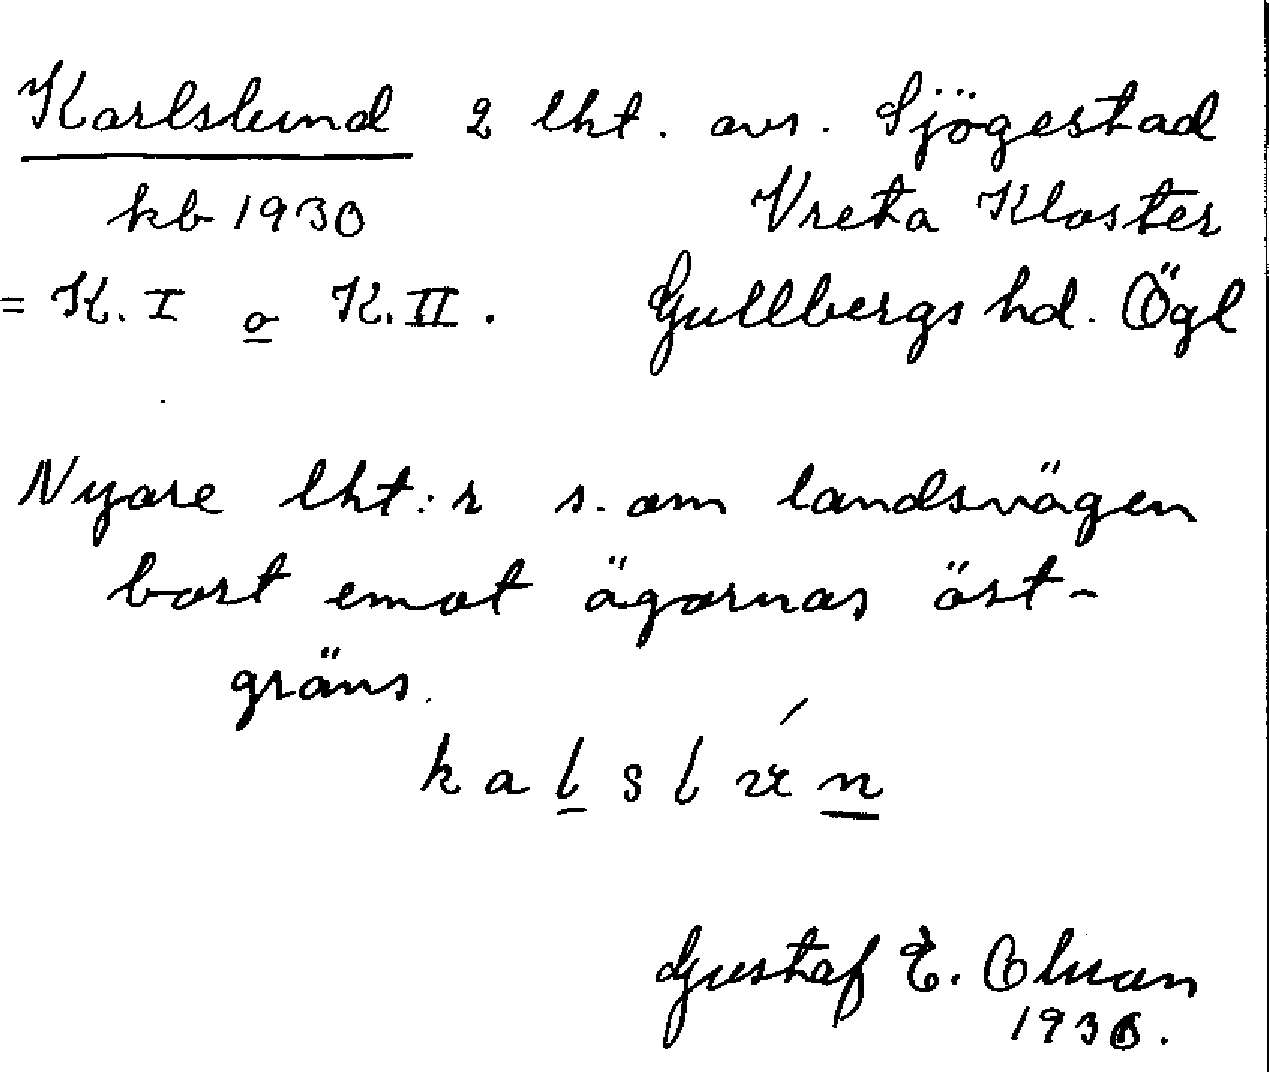 Karlslund 2 lht. avs. Sjögestad
kb 1930 Vreta Kloster
= K. I o K. II. Gullbergs hd. Ögl
Nyare lht:r s. om landsvägen
bort emot ägornas öst-
gräns.
k a l s l n
Gustaf E.
193